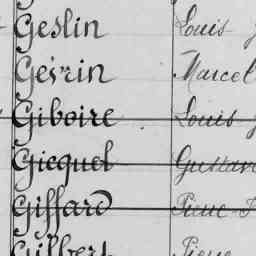 Geslin Louis
Gesrin Marcel
Giboire Louis
Gicquel Gustave
Giffard Pierre
Gilbert Pierre